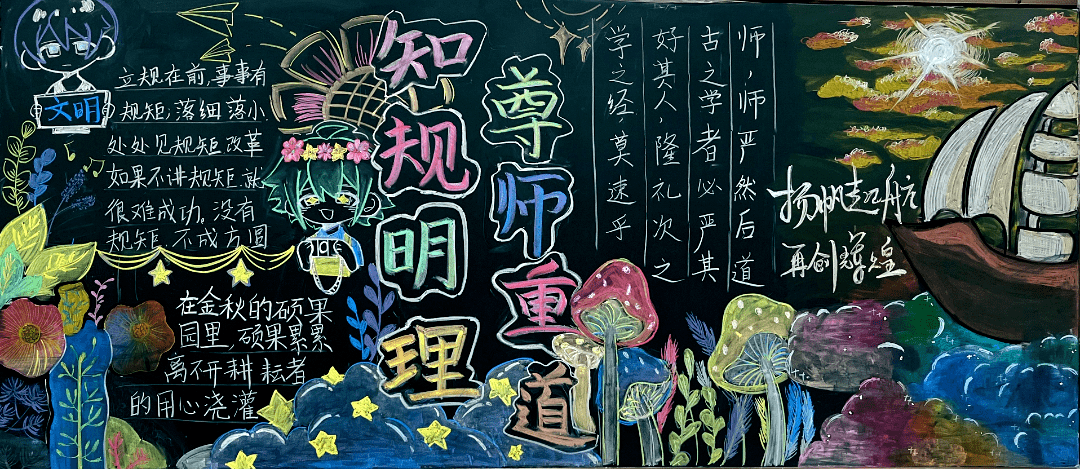 文明
立规在前,事事有
规矩,落细落小
处处见规矩改革
如果不讲规矩,就
很难成功,没有
规矩,不成方圆
在金秋的硕果
园里,硕果累累
离不开耕耘者
的用心浇灌
知规明理
尊师重道
师,师严然后道
古之学者必严其
好其人,隆礼次之
学之经莫速乎
扬帆起航
再创辉煌